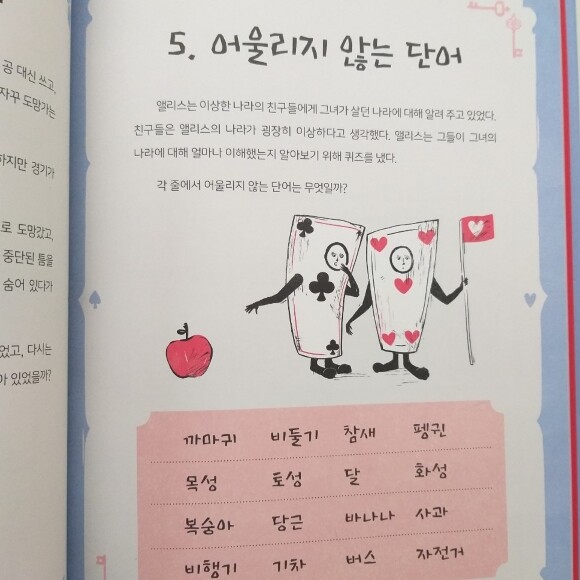 공 대신 쓰고,
자꾸 도망가는
하지만 경기가
로 도망갔고,
중단된 틈을
숨어 있다가
었고, 다시는
아 있었을까?
5. 어울리지 않는 단어
앨리스는 이상한 나라의 친구들에게 그녀가 살던 나라에 대해 알려 주고 있었다.
친구들은 앨리스의 나라가 굉장히 이상하다고 생각했다. 앨리스는 그들이 그녀의
나라에 대해 얼마나 이해했는지 알아보기 위해 퀴즈를 냈다.
각 줄에서 어울리지 않는 단어는 무엇일까?
까마귀 비둘기 참새 펭귄
목성 토성 달 화성
복숭아 당근 바나나 사과
비행기 기차 버스 자전거